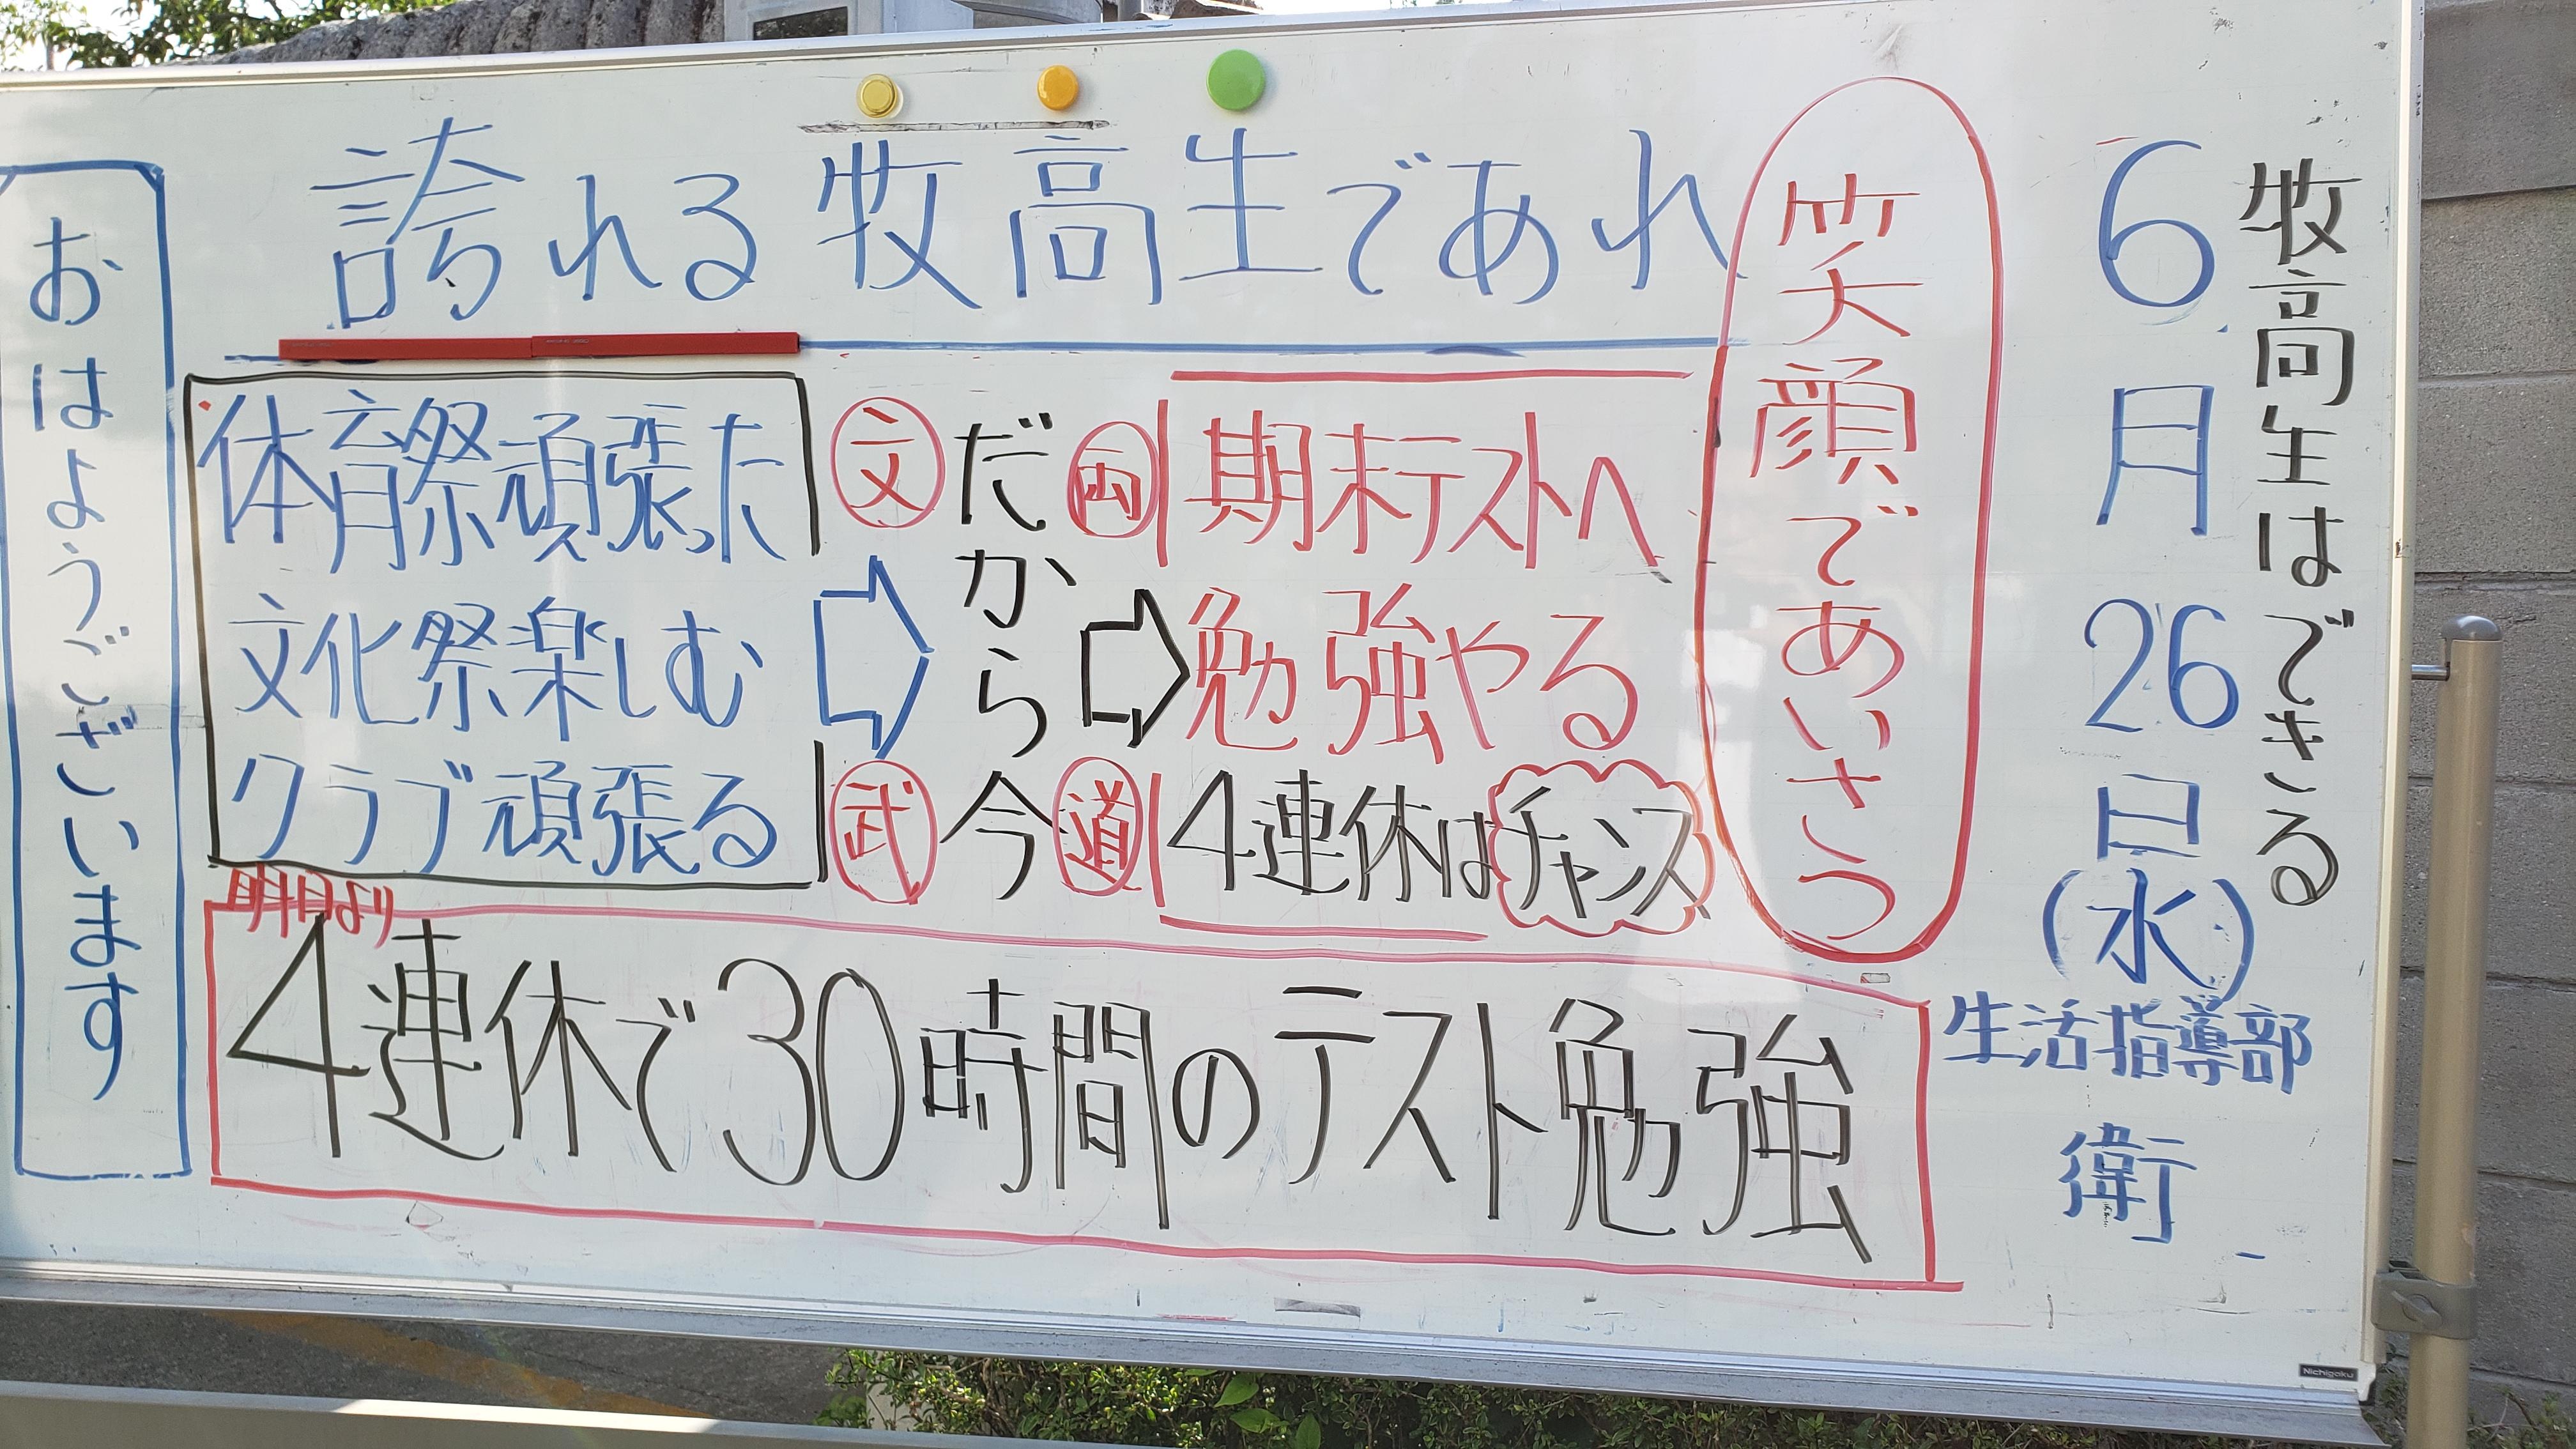 牧高生はできる
6月26日(水)
生活指導部
衛
笑顔であいさつ
誇れる牧高生であれ
体育祭頑張った
文化祭楽しむ
クラブ頑張る
文
武
だから今
両
道
期末テストへ
勉強やる
4連休はチャンス
明日より
4連休で30時間のテスト勉強
おはようございます
Nichigaku